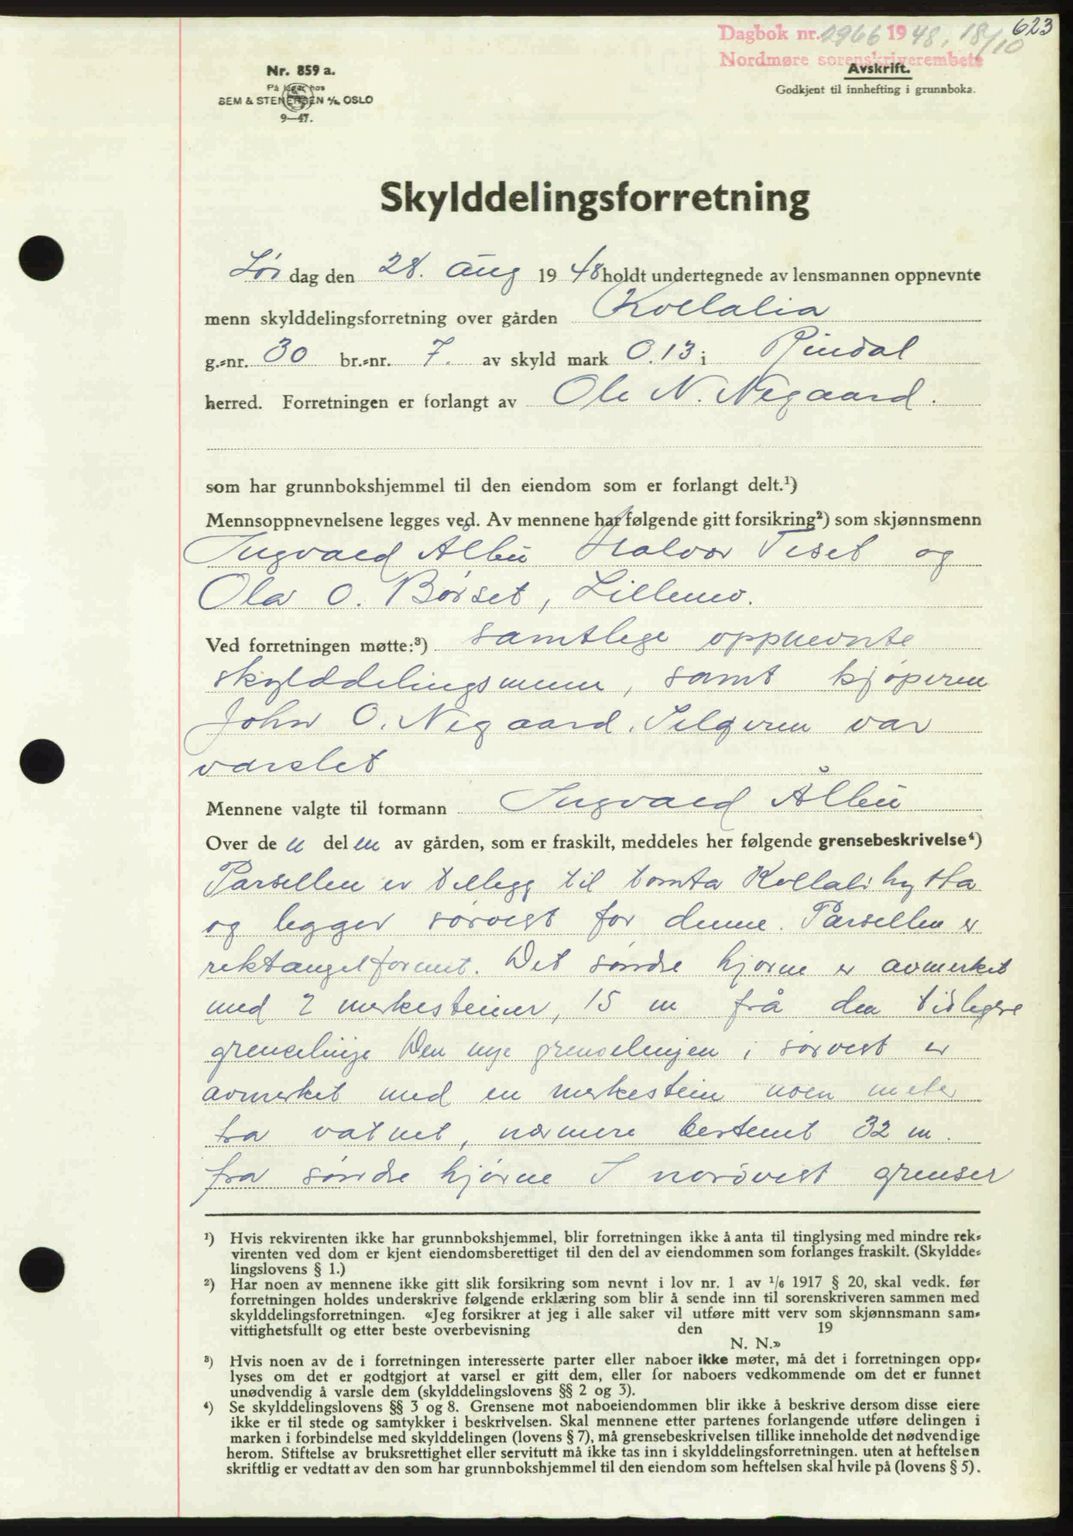 623
Dagbok nr. 2966 1948, 18/10
Nordmøre sorenskriverembete
Avskrift.
Godkjent til innhefting i grunnboka.
Nr. 859 a.
På lager hos
SEM & STENERSEN A/S, OSLO
9—47.
Skylddelingsforretning
Lør dag den 28. aug 1948 holdt undertegnede av lensmannen oppnevnte
menn skylddelingsforretning over gården Kvellalia
g.-nr. 30 br.-nr. 7. av skyld mark 0.13 i Rindal
herred. Forretningen er forlangt av Ole N. Negaard.
som har grunnbokshjemmel til den eiendom som er forlangt delt.¹)
Mennsoppnevnelsene legges ved. Av mennene har følgende gitt forsikring²) som skjønnsmenn
Ingvald Ålbu Halvor Tiset og
Ola O. Børset, Lillemo.
Ved forretningen møtte:³) samtlege oppnevnte
skylddelingsmenn, samt kjøperen
John O. Negaard. Selgeren var
varslet
Mennene valgte til formann Ingvald Ålbu
Over de n del en av gården, som er fraskilt, meddeles her følgende grensebeskrivelse⁴)
Parsellen er tillegg til tomta Kvellalihytta
og legger sørvest for denne. Parsellen er
rektangelformet. Det søndre hjørne er avmerket
med 2 merkesteiner, 15 m frå den tidligere
grenselinje Den nye grenselinjen i sørvest er
avmerket med en merkestein noen meter
fra vatnet, nærmere bestemt 32 m.
fra søndre hjørne I nordvest grenser
¹) Hvis rekvirenten ikke har grunnbokshjemmel, blir forretningen ikke å anta til tinglysing med mindre rek-
virenten ved dom er kjent eiendomsberettiget til den del av eiendommen som forlanges fraskilt. (Skyldde-
lingslovens § 1.)
²) Har noen av mennene ikke gitt slik forsikring som nevnt i lov nr. 1 av 1/6 1917 § 20, skal vedk. før
forretningen holdes underskrive følgende erklæring som blir å sende inn til sorenskriveren sammen med
skylddelingsforretningen. «Jeg forsikrer at jeg i alle saker vil utføre mitt verv som skjønnsmann sam-
vittighetsfullt og etter beste overbevisning den 19
N. N.»
³) Hvis noen av de i forretningen interesserte parter eller naboer ikke møter, må det i forretningen opp-
lyses om det er godtgjort at varsel er gitt dem, eller for naboers vedkommende om det er funnet
unødvendig å varsle dem (skylddelingslovens §§ 2 og 3).
⁴) Se skylddelingslovens §§ 3 og 8. Grensene mot naboeiendommen blir ikke å beskrive dersom disse eiere
ikke er til stede og samtykker i beskrivelsen. Skal mennene etter partenes forlangende utføre delingen i
marken i forbindelse med skylddelingen (lovens § 7), må grensebeskrivelsen tillike inneholde det nødvendige
herom. Stiftelse av bruksrettighet eller servitutt må ikke tas inn i skylddelingsforretningen. uten at heftelsen
skriftlig er vedtatt av den som har grunnbokshjemmel til den eiendom som heftelsen skal hvile på (lovens § 5).